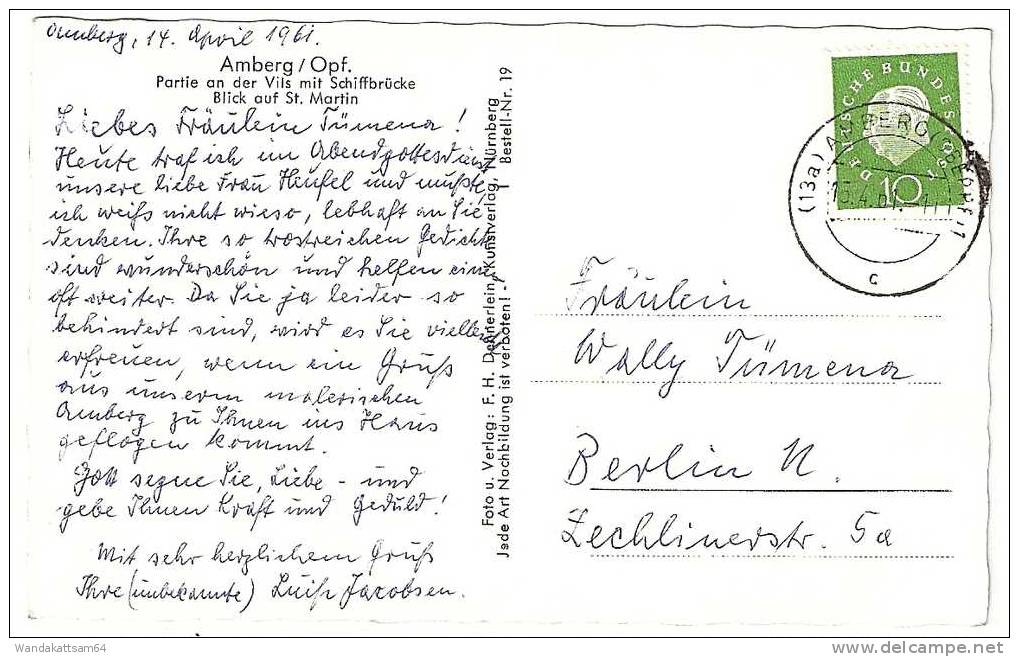 Amberg, 14. April 1961.
Amberg / Opf.
Partie an der Vils mit Schiffbrücke
Blick auf St. Martin
Liebes Fräulein Tümena!
Heute traf ich im Abendgottesdienst
unsere liebe Frau Heufel und mußte,
ich weiß nicht wieso, lebhaft an Sie
denken. Ihre so trostreichen Gedichte
sind wunderschön und helfen einem
oft weiter. Da Sie ja leider so
behindert sind, wird es Sie vielleicht
erfreuen, wenn ein Gruß
aus unserm malerischen
Amberg zu Ihnen ins Haus
geflogen kommt.
Gott segne Sie, Liebe - und
gebe Ihnen Kraft und Geduld!
Mit sehr herzlichem Gruß
Ihre (unbekannte) Luise Jacobsen.
Foto u. Verlag: F. H. Deinlerlein, Kunstverlag, Nürnberg
Jede Art Nachbildung ist verboten! Bestell-Nr. 19
DEUTSCHE BUNDESPOST
10
(13a) AMBERG (OBERPF) 1
15.4.61.-11
c
Fräulein
Wally Tümena
Berlin N.
Zechlinerstr. 5a
Wandakattsam64
delcampe.net